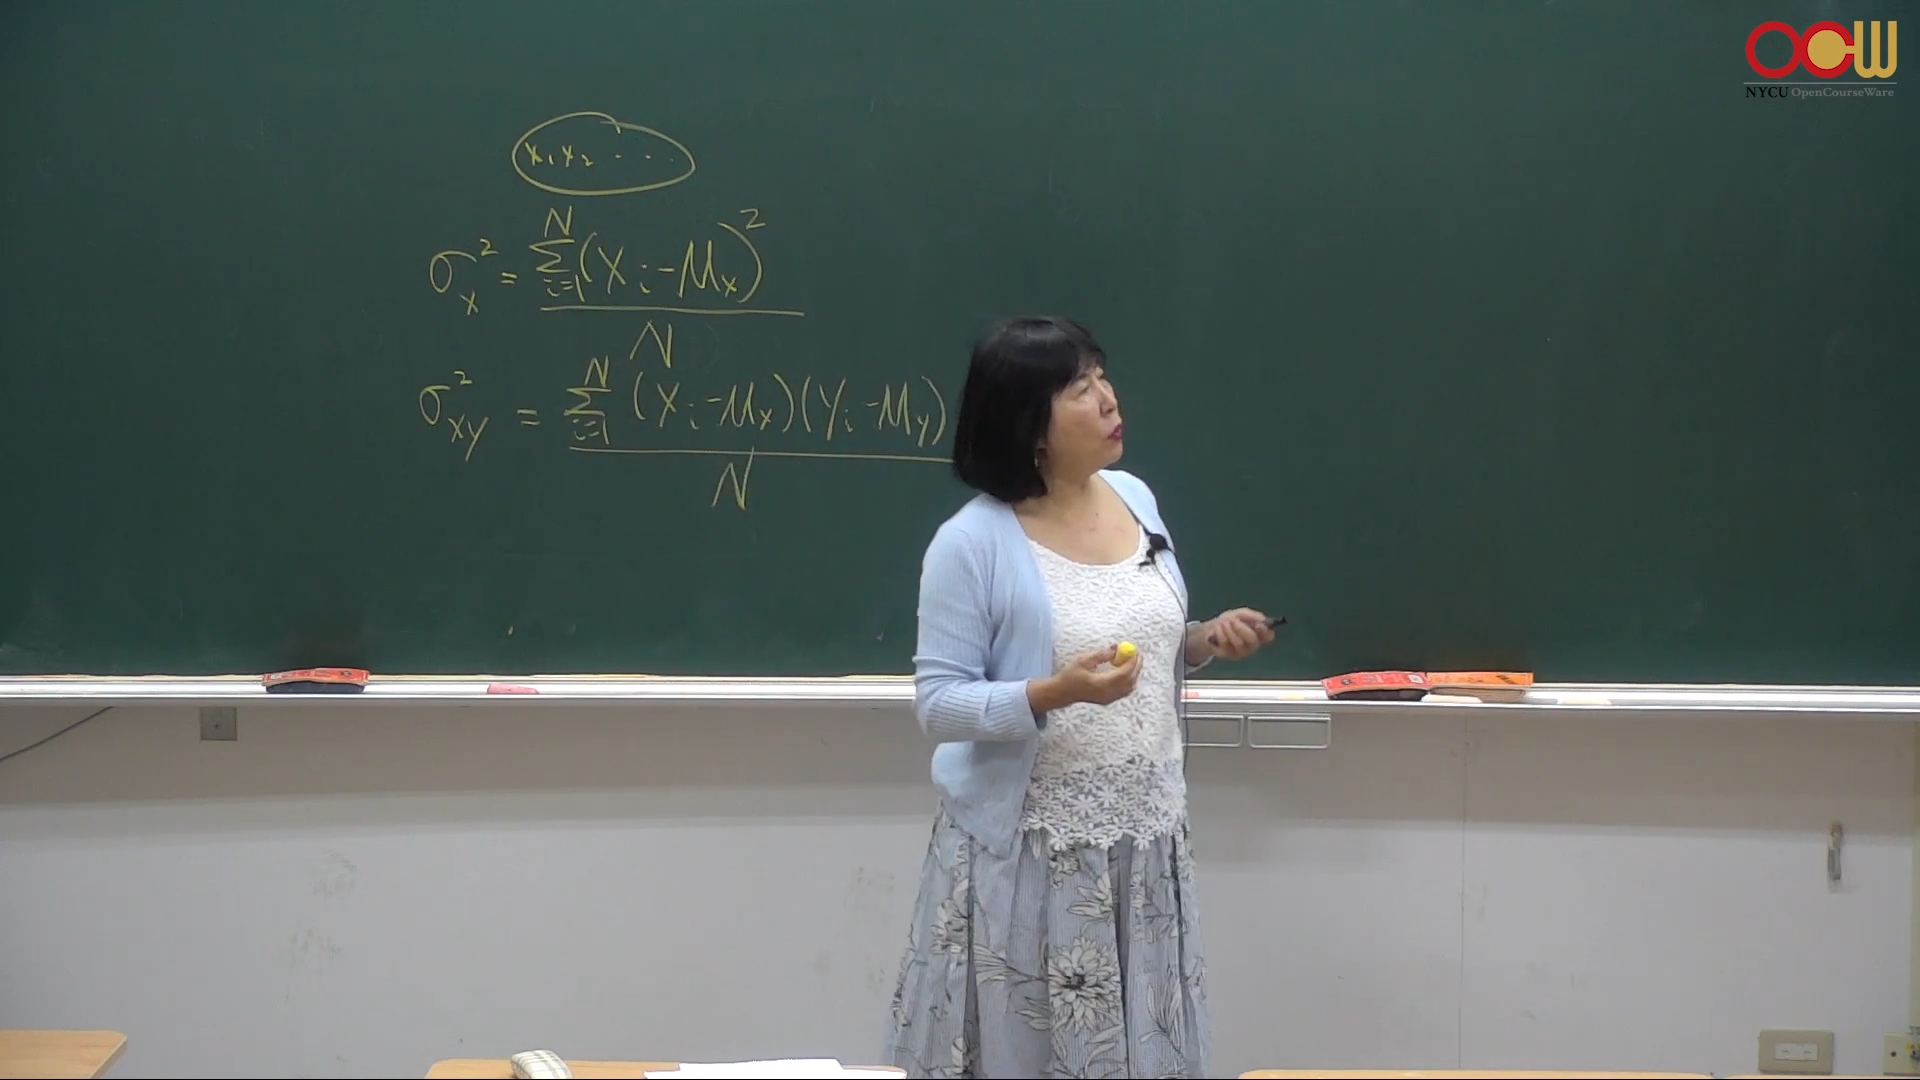 OCW
NYCU OpenCourseWare
x₁ x₂ .....
σ_x² = \frac{\sum_{i=1}^{N}(X_i-μ_x)²}{N}
σ_{xy}² = \frac{\sum_{i=1}^{N}(X_i-μ_x)(Y_i-μ_y)}{N}